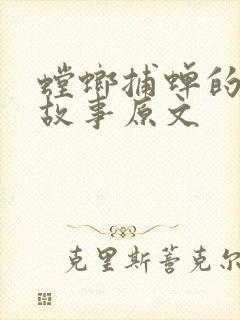 螳螂捕蝉的
故事原文
克里斯蒂克尔